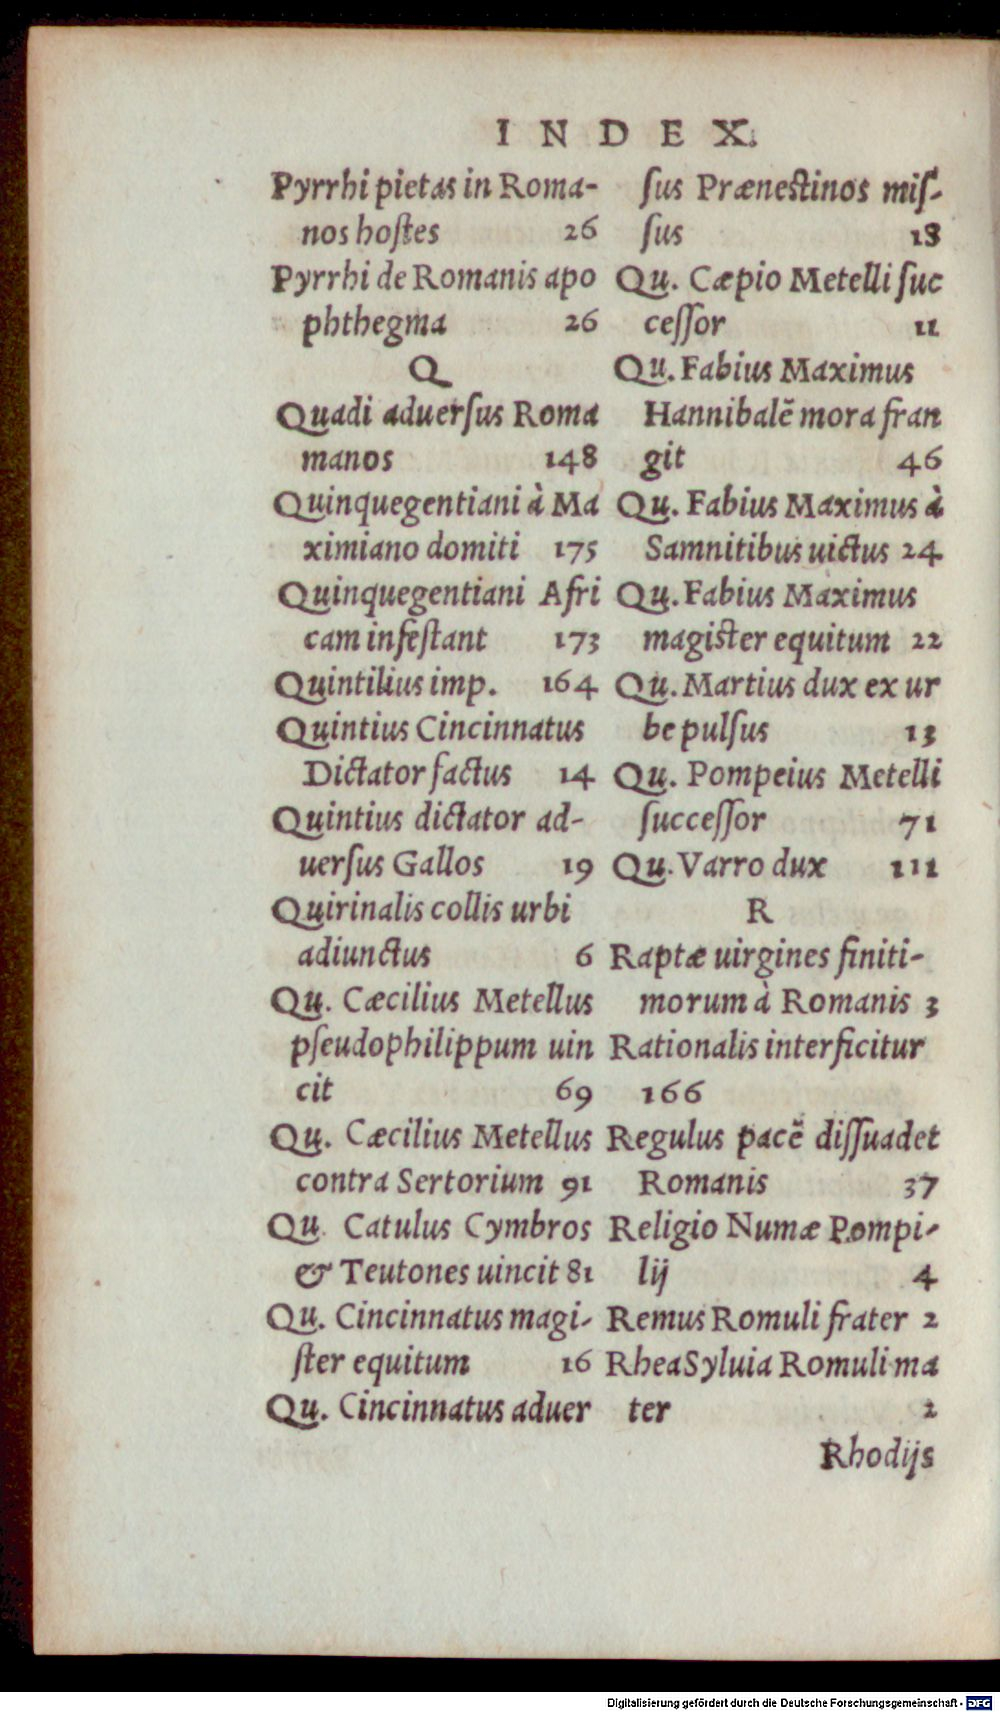 INDEX.
Pyrrhi pietas in Roma-
nos hostes 26
Pyrrhi de Romanis apo
phthegma 26
Q
Quadi aduersus Roma
manos 148
Quinquegentiani à Ma
ximiano domiti 175
Quinquegentiani Afri
cam infestant 173
Quintilius imp. 164
Quintius Cincinnatus
Dictator factus 14
Quintius dictator ad-
uersus Gallos 19
Quirinalis collis urbi
adiunctus 6
Qu. Cæcilius Metellus
pseudophilippum uin
cit 69
Qu. Cæcilius Metellus
contra Sertorium 91
Qu. Catulus Cymbros
& Teutones uincit 81
Qu. Cincinnatus magi-
ster equitum 16
Qu. Cincinnatus aduer
sus Prænestinos mis-
sus 18
Qu. Cæpio Metelli suc
cessor 11
Qu. Fabius Maximus
Hannibalẽ mora fran
git 46
Qu. Fabius Maximus à
Samnitibus uictus 24
Qu. Fabius Maximus
magister equitum 22
Qu. Martius dux ex ur
be pulsus 13
Qu. Pompeius Metelli
successor 71
Qu. Varro dux 111
R
Raptæ uirgines finiti-
morum à Romanis 3
Rationalis interficitur
166
Regulus pacẽ dissuadet
Romanis 37
Religio Numæ Pompi-
lij 4
Remus Romuli frater 2
Rhea Syluia Romuli ma
ter 2
Rhodijs
Digitalisierung gefördert durch die Deutsche Forschungsgemeinschaft - DFG